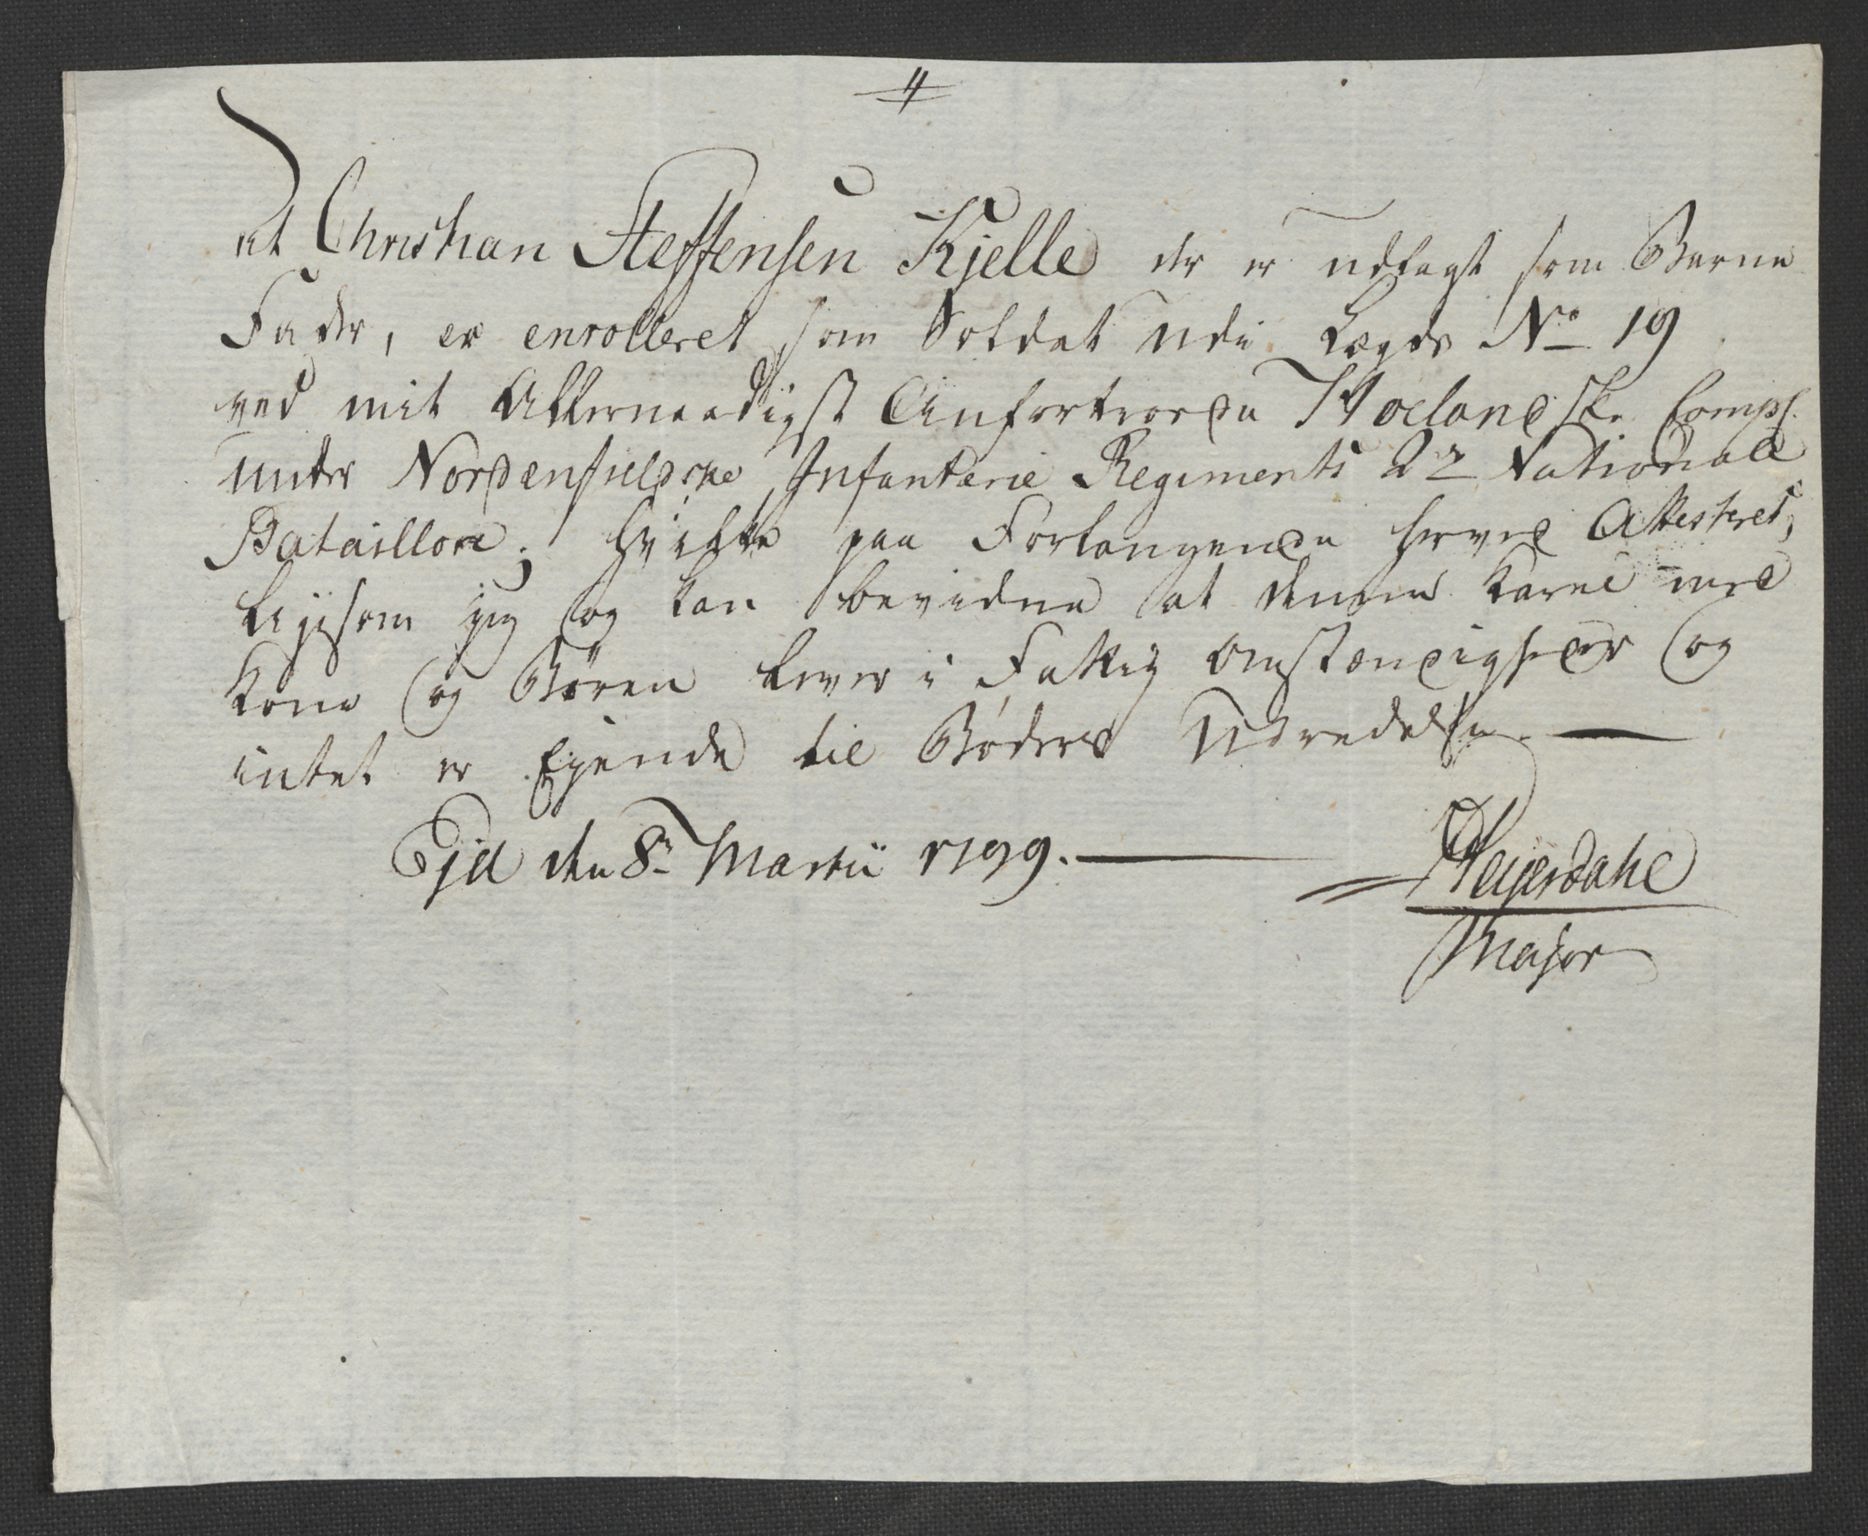 4
At Christian Steffensen Kjelle der er udlagt som Barne
Fader, er enrolleret som Soldat udi Lægds No 19
ved mit Allernaadigst Anfortroede Høelandske Comps:
under Nordenfieldske Infanterie Regiments 2de Nationale
Bataillon; hvilket paa Forlangende herved Attesteres,
Ligesom jeg og kan bevidne at denne Karl med
Kone og Børen lever i Fattig Omstændigheder og
intet er Ejende til Bøders Udredelse.
Eid den 8de Martii 1799.
Heyerdahl
Major